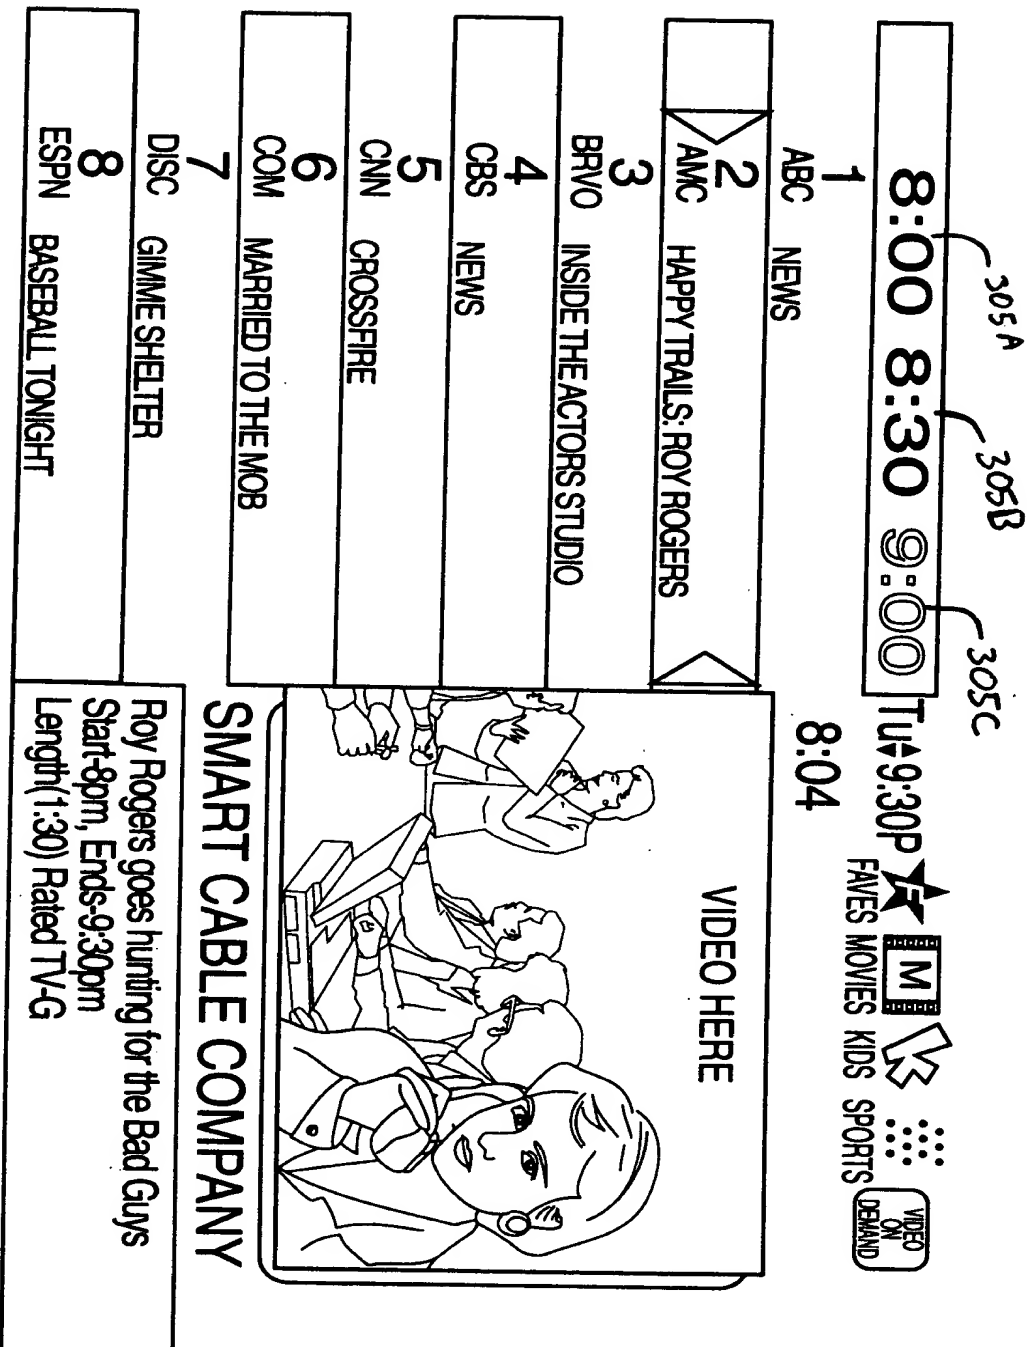 305A
305B
305C
8:00 8:30 9:00 Tu 9:30P
F M K
FAVES MOVIES KIDS SPORTS
VIDEO
ON
DEMAND
8:04
1
ABC NEWS
2
AMC HAPPY TRAILS: ROY ROGERS
3
BRVO INSIDE THE ACTORS STUDIO
4
CBS NEWS
5
CNN CROSSFIRE
6
COM MARRIED TO THE MOB
7
DISC GIMME SHELTER
8
ESPN BASEBALL TONIGHT
VIDEO HERE
SMART CABLE COMPANY
Roy Rogers goes hunting for the Bad Guys
Start-8pm, Ends-9:30pm
Length(1:30) Rated TV-G